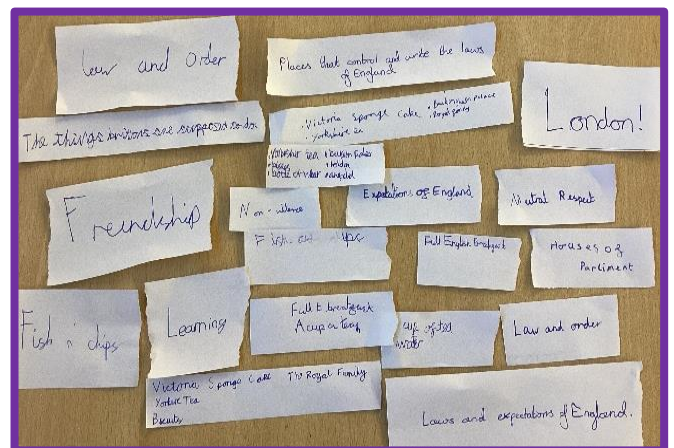 Law and Order
Places that control and write the laws
of England
London!
The things britons are supposed to do
Victoria Sponge Cake
Yorkshire tea
Buckingham palace
Royal family
Yorkshire tea
Freindship
Non-violence
Expectations of England
Mutral Respect
Fish and chips
Full English breakfast
Houses of
Parliment
Fish n' chips
Learning
Full E breakfast
A cup on tea
cup of tea
water
Law and order
Victoria Sponge Cake The Royal Family
Yorkire Tea
Biscuits
Laws and expectations of England.